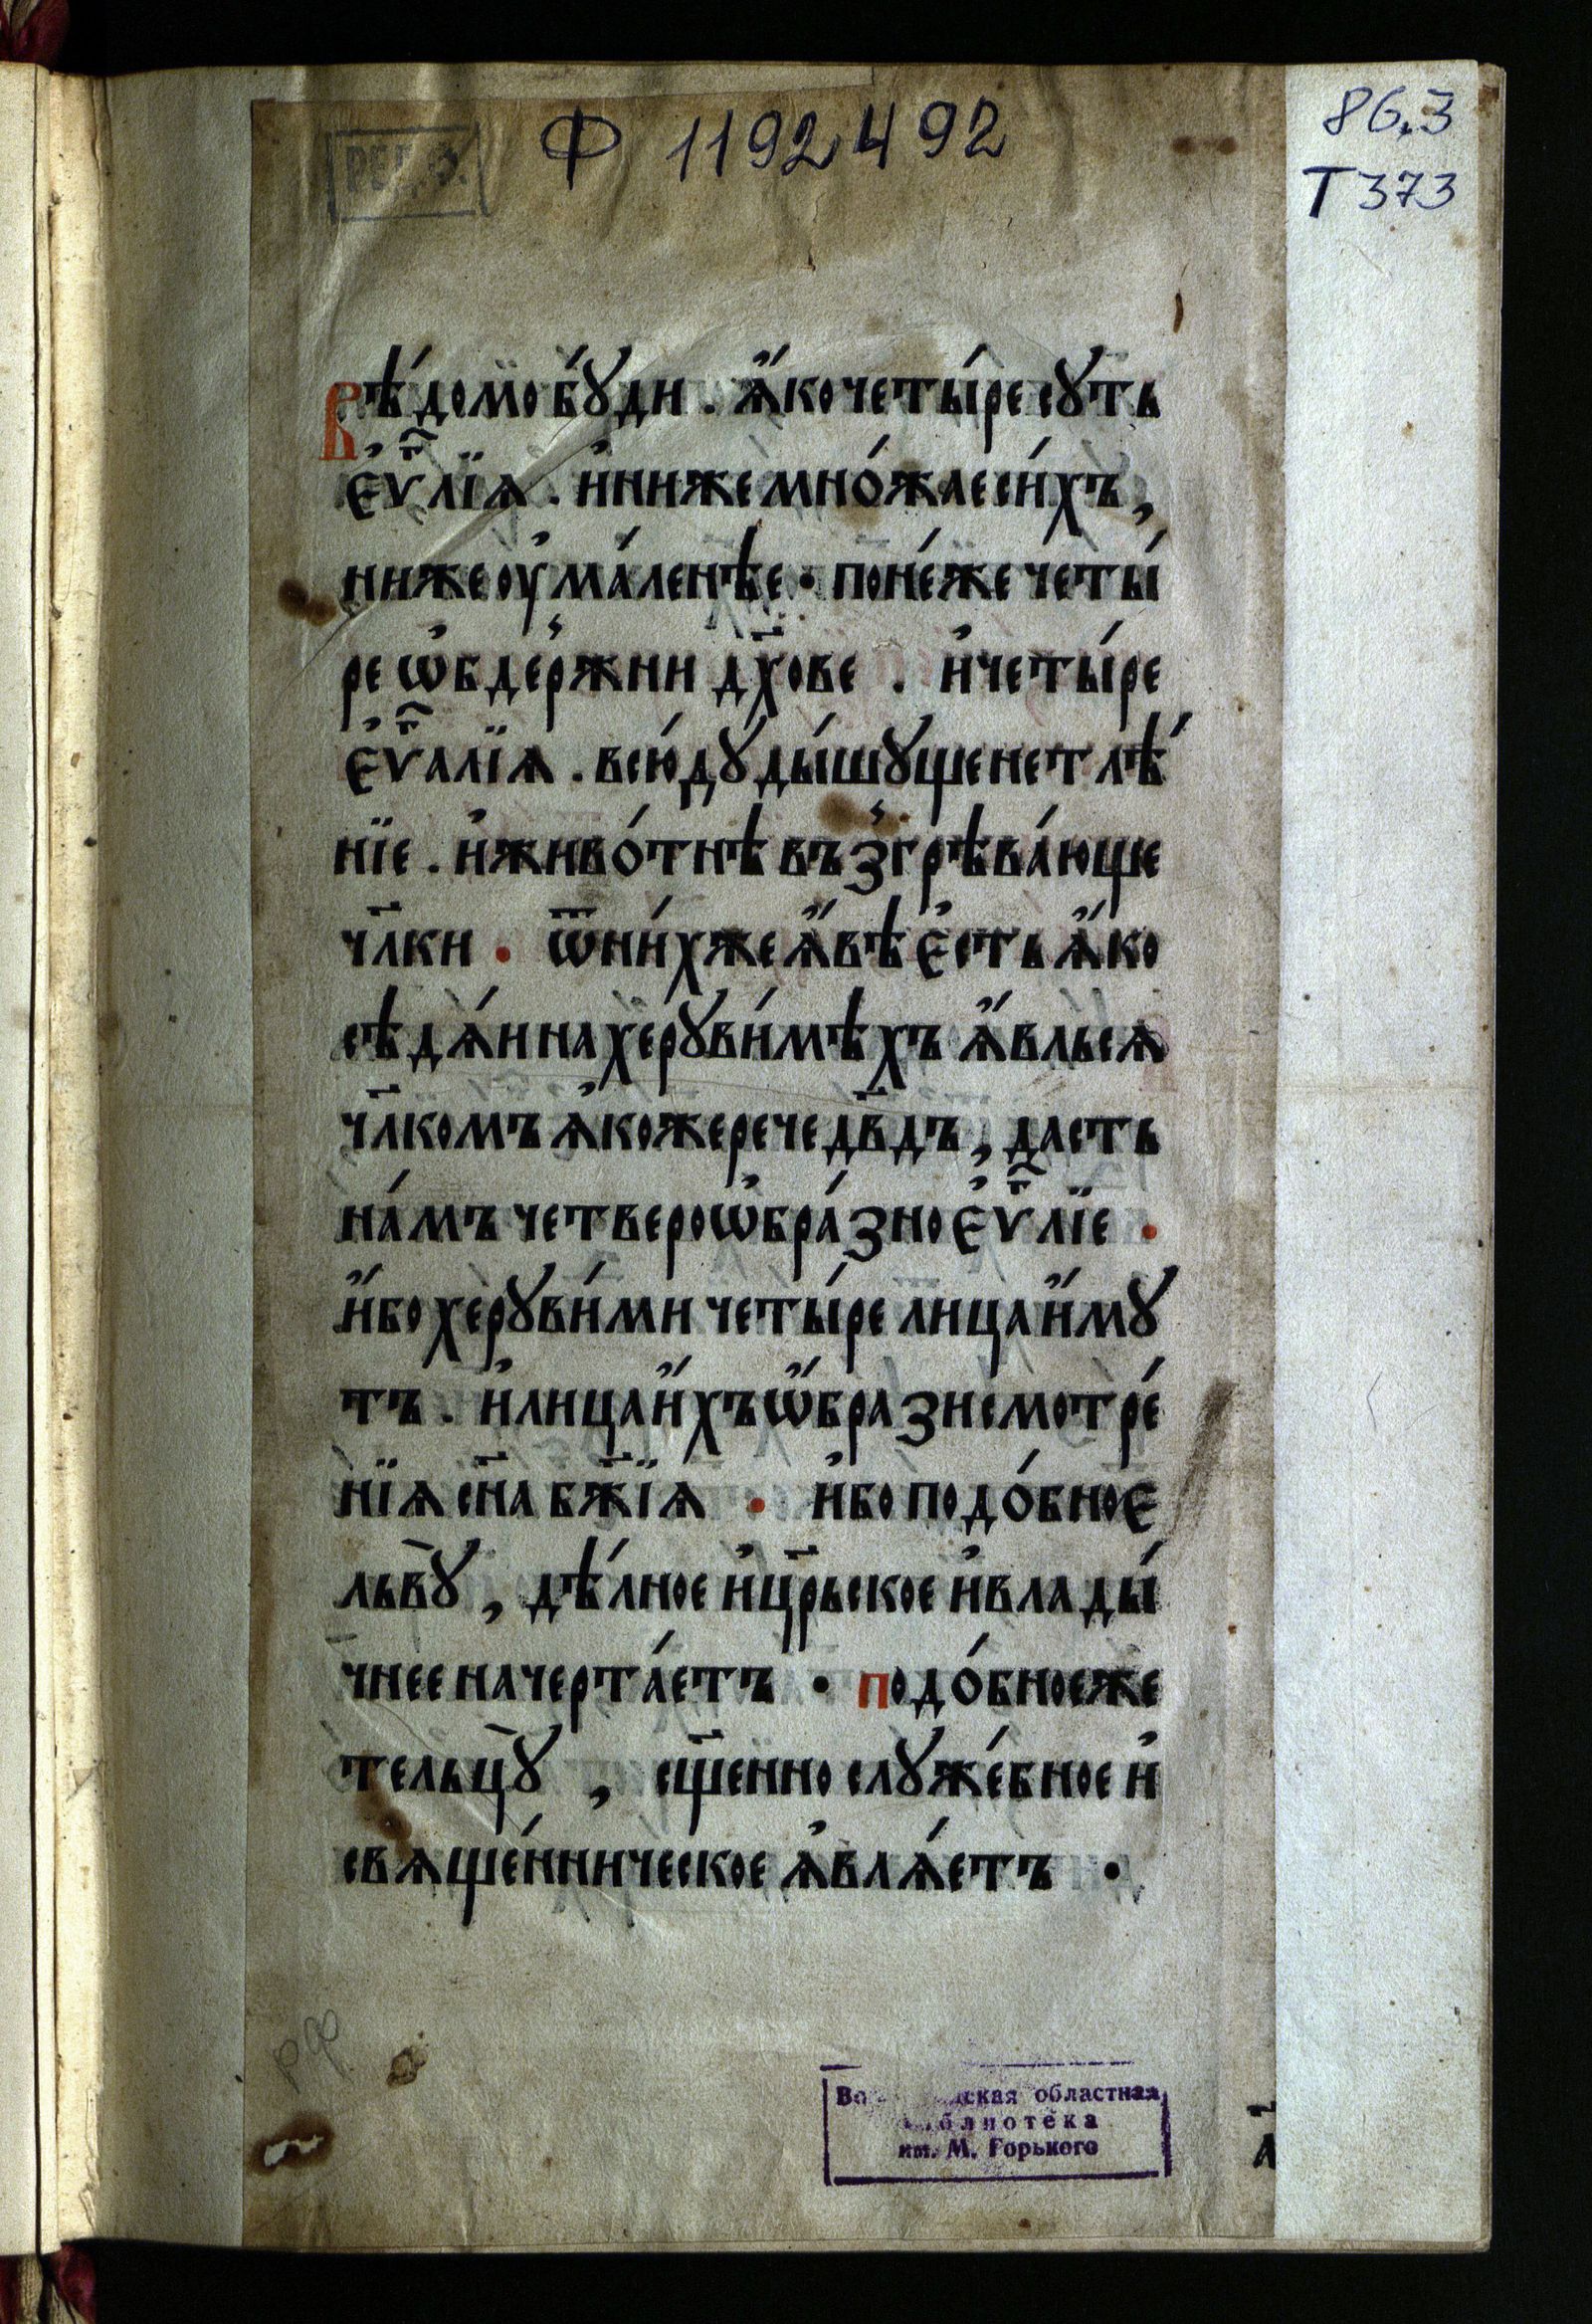 86.3
Т 373
Ф 1192492
РЕД.Ф.
Вѣ́домо бꙋ́ди . ꙗ҆́ко четы́ре сꙋть
є҆ѵⷢ҇лїѧ . и҆ ниже мно́жае си́хъ ,
ниже оу҆ма́ленѣе · поне́же четы́
ре ѡ҆бдержнїи дх҃ове . и҆ четы́ре
є҆ѵⷢ҇алїѧ . всю́дꙋ ды́шꙋще нетлѣ́
нїе . и҆ живо́тнѣ въꙁгрѣва́юще
чл҃ки · ѿ ни́хже ꙗ҆́вѣ є҆сть ꙗ҆́ко
сѣдѧ́и на херꙋви́мѣхъ ꙗ҆́вльсѧ
чл҃комъ ꙗ҆коже рече дв҃дъ , дасть
на́мъ четвероѡ҆бра́ꙁно є҆ѵⷢ҇лїе ·
и҆́бо херꙋви́ми четы́ре лица и҆́мꙋ
тъ . и҆ лица и҆́хъ ѡ҆́браꙁи смотре́
нїѧ сн҃а бж҃їѧ · и҆бо подо́бное
львꙋ̀ , дѣ́лное и҆ цр҃ьское и҆ влады́
чнее начерта́етъ · подо́бное же
тельцꙋ̀ , сщ҃енно слꙋже́бное и҆
свѧще́нническое ꙗ҆влѧ́етъ ·
рф
областная
библиотека
им. М. Горького